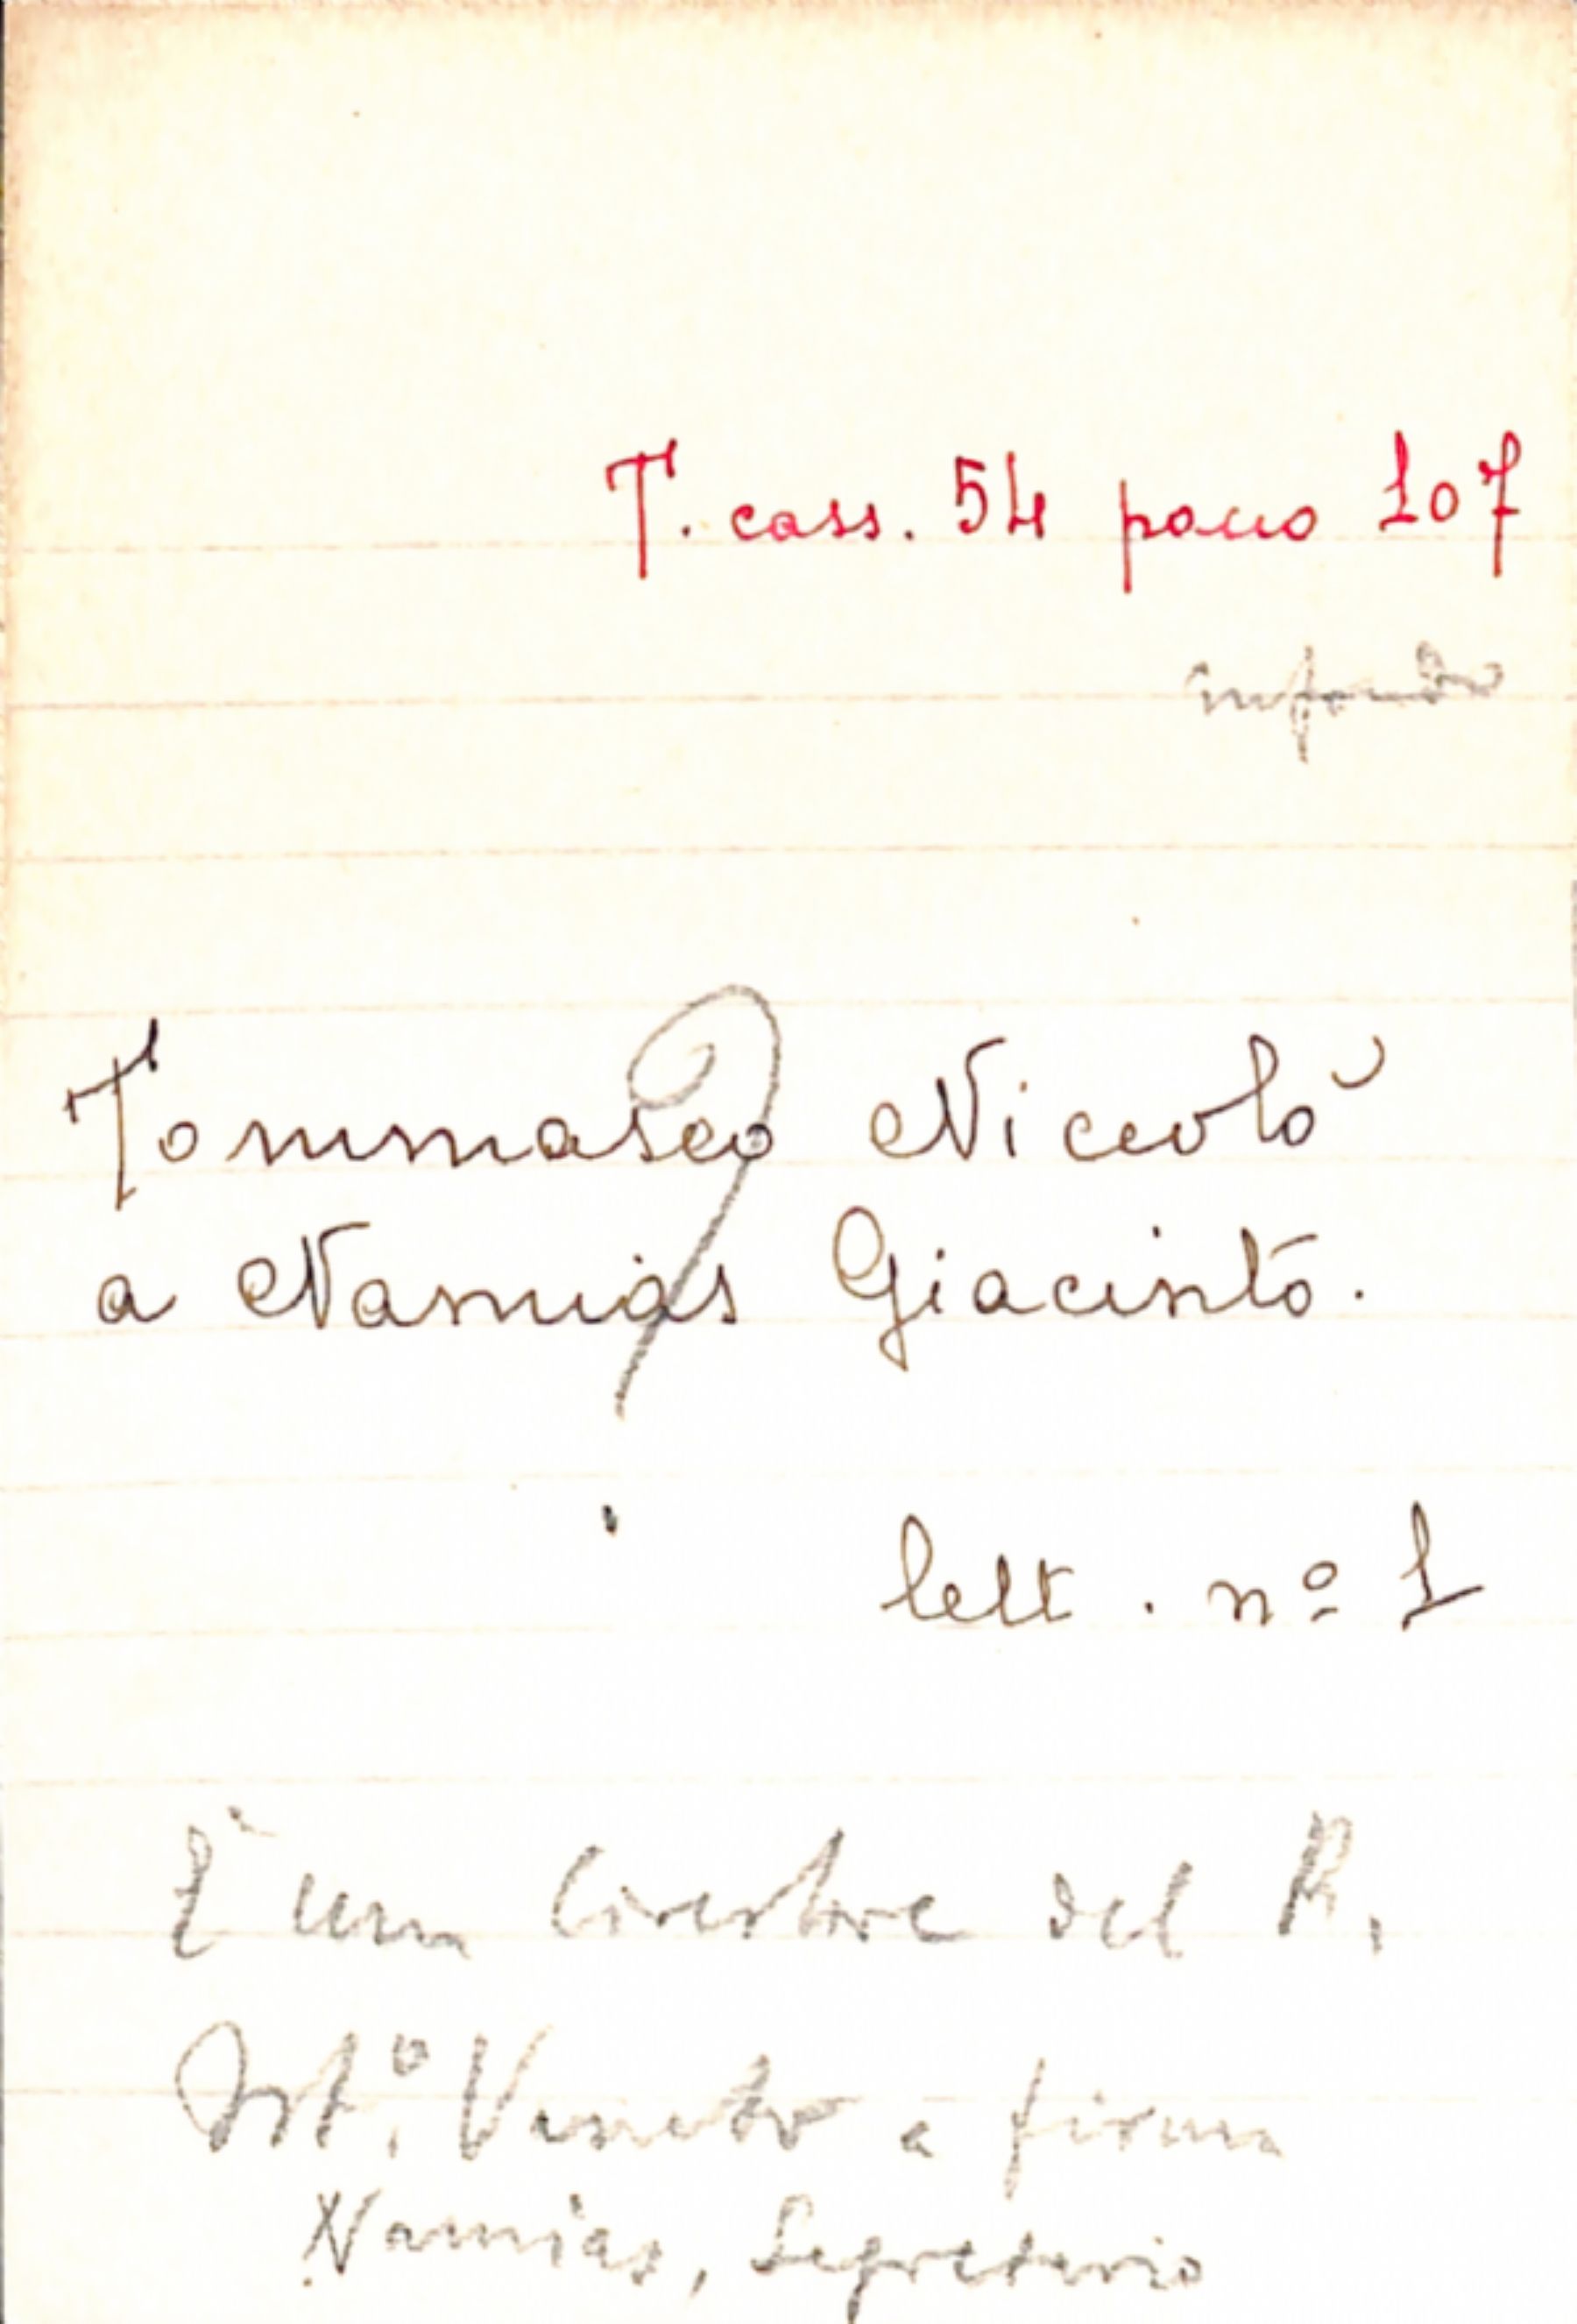 T. cass. 54 pacco 107
in fondo
Tommaseo Niccolò
a Namias Giacinto.
lett. nº 1
È una circolare del R.
Istº. Veneto a firma
Namias, Segretario